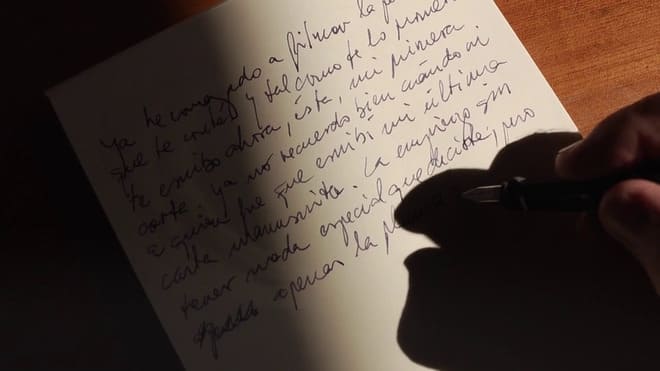 Ya he comenzado a filmar la
que te conté, y tal como te lo
te escribo ahora, ésta, mi primera
carta. Ya no recuerdo bien cuándo ni
a quién fue que escribí mi última
carta manuscrita. La empiezo sin
tener nada especial que decirte, pero
apenas la